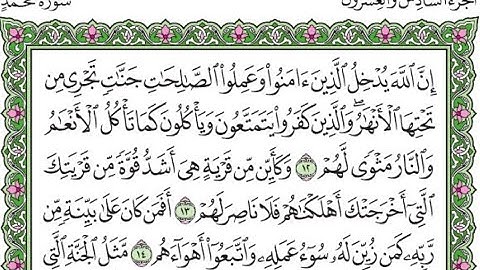 الجزء السادس والعشرون سورة محمد
إِنَّ ٱللَّهَ يُدْخِلُ ٱلَّذِينَ ءَامَنُوا۟ وَعَمِلُوا۟ ٱلصَّٰلِحَٰتِ جَنَّٰتٍ تَجْرِى مِن
تَحْتِهَا ٱلْأَنْهَٰرُ ۖ وَٱلَّذِينَ كَفَرُوا۟ يَتَمَتَّعُونَ وَيَأْكُلُونَ كَمَا تَأْكُلُ ٱلْأَنْعَٰمُ
وَٱلنَّارُ مَثْوًى لَّهُمْ ١٢ وَكَأَيِّن مِّن قَرْيَةٍ هِىَ أَشَدُّ قُوَّةً مِّن قَرْيَتِكَ
ٱلَّتِىٓ أَخْرَجَتْكَ أَهْلَكْنَٰهُمْ فَلَا نَاصِرَ لَهُمْ ١٣ أَفَمَن كَانَ عَلَىٰ بَيِّنَةٍ مِّن
رَّبِّهِۦ كَمَن زُيِّنَ لَهُۥ سُوٓءُ عَمَلِهِۦ وَٱتَّبَعُوٓا۟ أَهْوَآءَهُم ١٤ مَّثَلُ ٱلْجَنَّةِ ٱلَّتِى